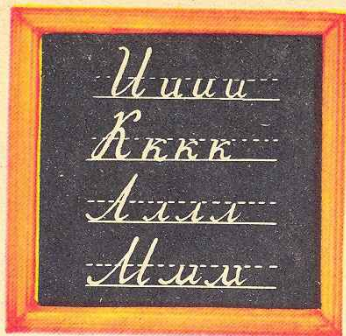 И и и и
К к к к
Л л л л
М м м